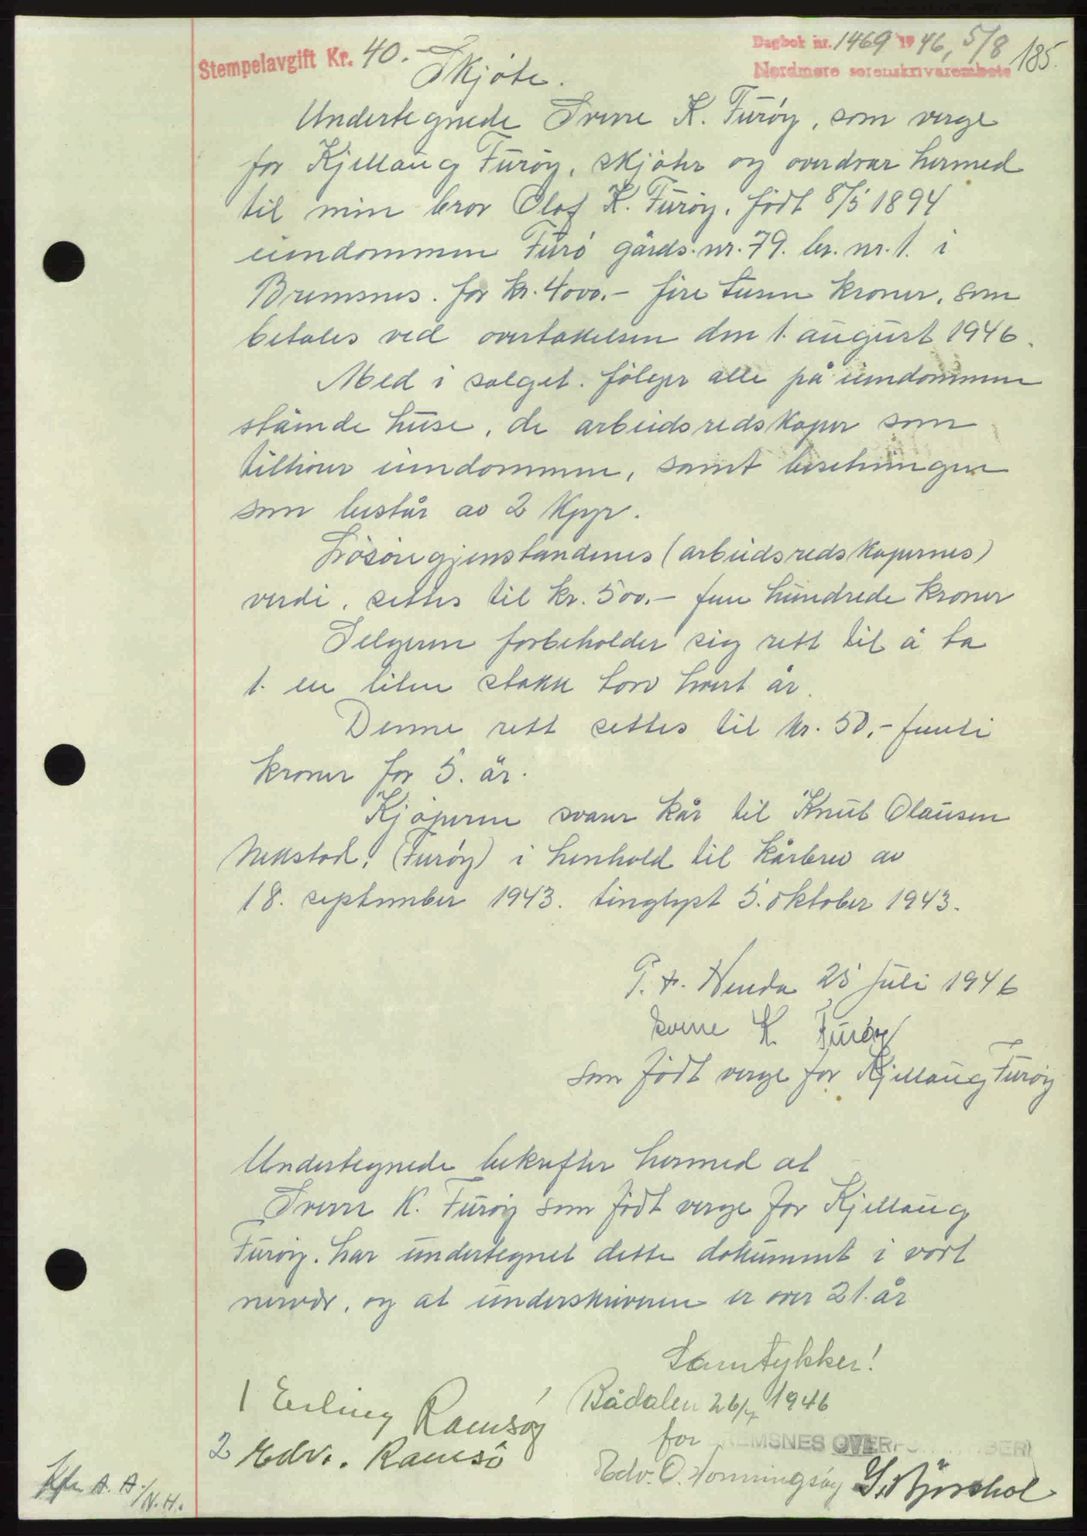 Stempelavgift Kr. 40.-
Dagbok nr. 1469 1946, 5/8
Nordmøre sorenskriverembete
185.
Skjöte.
Undertegnede Sverre K. Furöy, som verge
for Kjellaug Furöy, skjöter og overdrar hermed
til min bror Olaf K. Furöy, födt 8/5 1894
eiendommen Furö gårds.nr. 79. br. nr. 1. i
Bremsnes. for kr. 4000.- fire tusen kroner, som
betales ved overtakelsen den 1. august 1946.
Med i salget. fölger alle på eiendommen
stående huse, de arbeidsredskaper som
tilhörer eiendommen, samt besetningen
som består av 2 Kyr.
Lösöregjenstandenes (arbeidsredskapernes)
verdi, settes til kr. 500.- fem hundrede kroner
Selgeren forbeholder sig rett til å ta
1. en liten stakk torv hvert år.
Denne rett settes til kr. 50.- femti
kroner for 5. år.
Kjöperen svarer kår til Knut Olausen
(Furöy) i henhold til kårbrev av
18. september 1943. tinglyst 5. oktober 1943.
P. t. Henda 25 juli 1946
Sverre K. Furöy
som födt verge for Kjellaug Furöy
Undertegnede bekrefter hermed at
Sverre K. Furöy som födt verge for Kjellaug
Furöy. har undertegnet dette dokument i vort
nervær, og at underskriveren er over 21. år
Samtykker!
1 Erling Ramsöy
Bådalen 26/7 1946
2 Edv. Ramsö
for BREMSNES OVERFORMYNDERI
Edv. O. Honningsöy
Kfr. A. A./N.H.